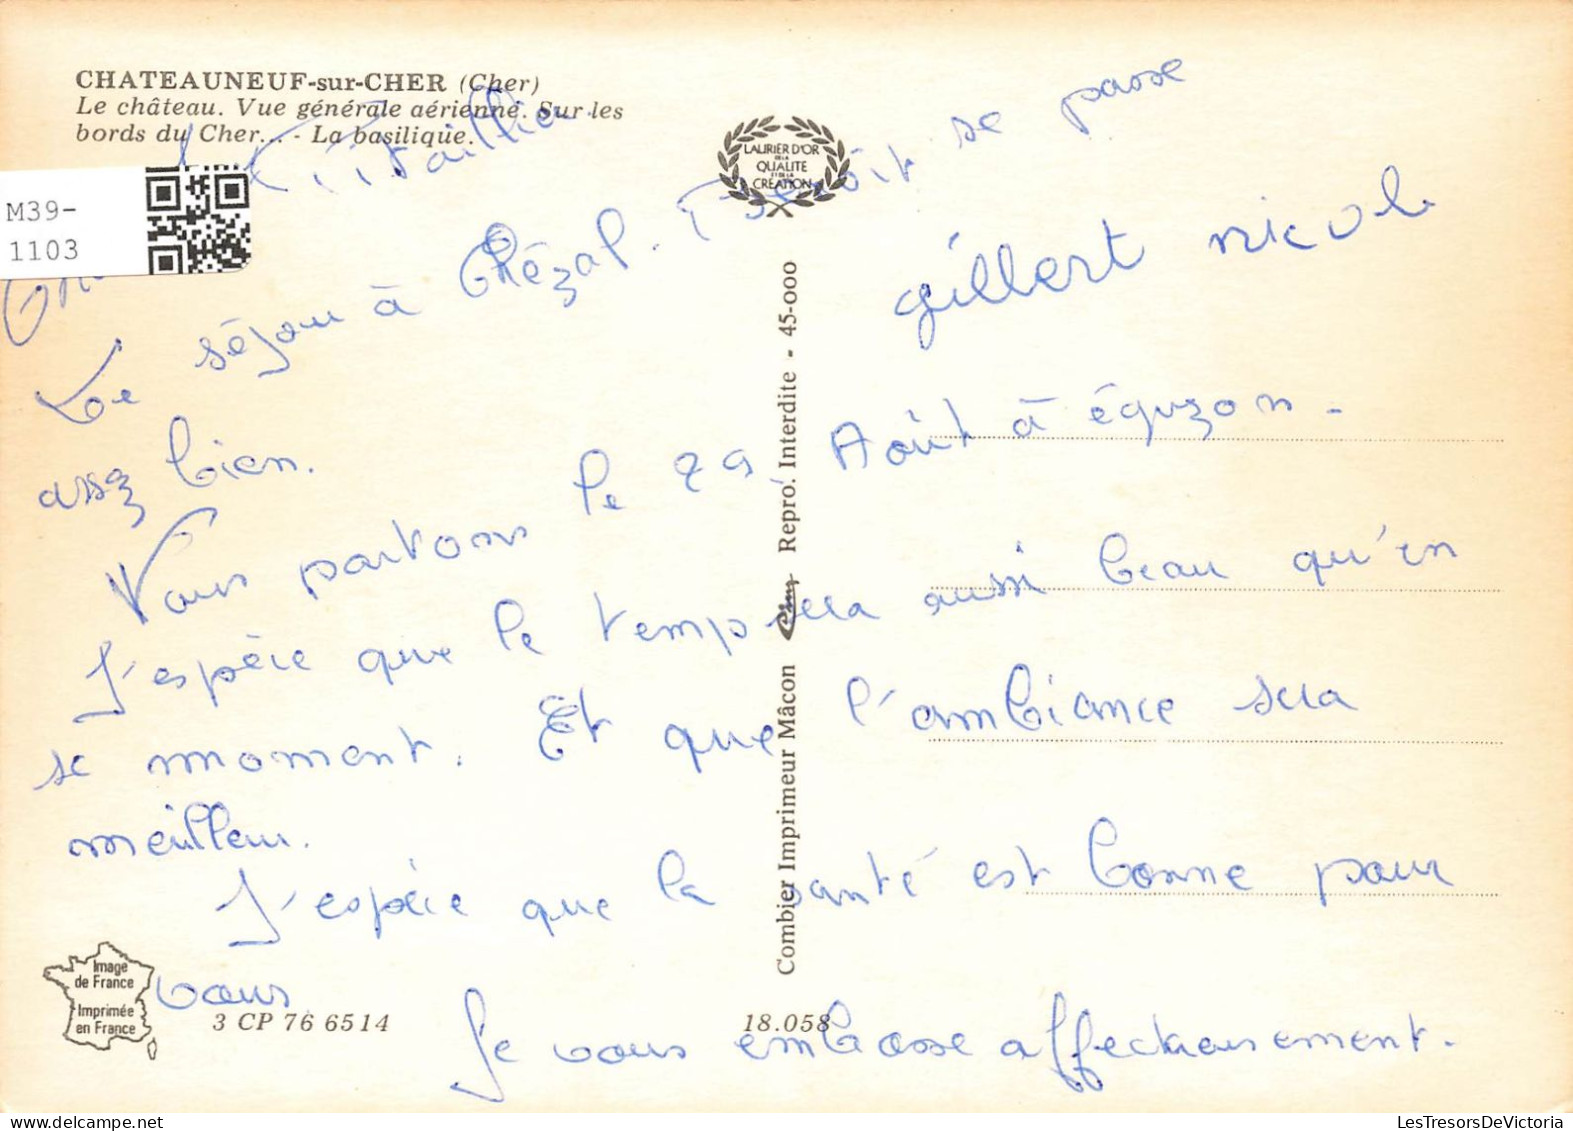 CHATEAUNEUF-sur-CHER (Cher)
Le château. Vue générale aérienne. Sur les
bords du Cher... - La basilique.
M39-
1103
LAURIER D'OR
DE LA
QUALITE
ET DE LA
CRÉATION
Le séjour à Chézal. Benoit se passe
assez bien.
Nous partons le 29 Août à éguzon.
J'espèce que le temps sera aussi beau qu'en
se moment. Et que l'ambiance sera
meilleur.
J'espèce que la santé est bonne pour
vous
Je vous embrasse affectueusement.
gillbert nicole
Combier Imprimeur Mâcon Cim Repro. Interdite - 45-000
Image
de France
Imprimée
en France
3 CP 76 6514
18.058
LesTresorsDeVictoria